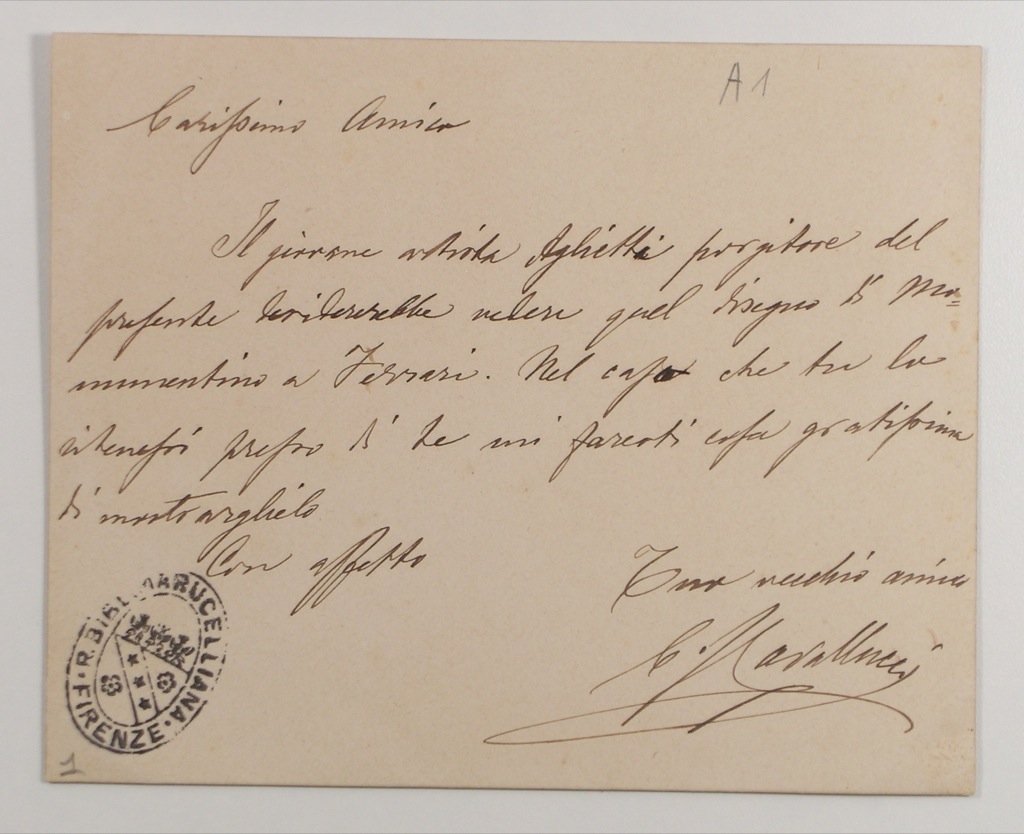 A 1
Carissimo Amico
Il giovane artista Aglietti porgitore del
presente desidererebbe vedere quel disegno di Mo=
numentino a Ferrari. Nel caso che tu lo
ritenessi presso di te mi faresti cosa gratissima
di mostrarglielo
Con affetto
Tuo vecchio amico
C. J. Cavallucci
R. BIBL. MARUCELLIANA · FIRENZE ·
1